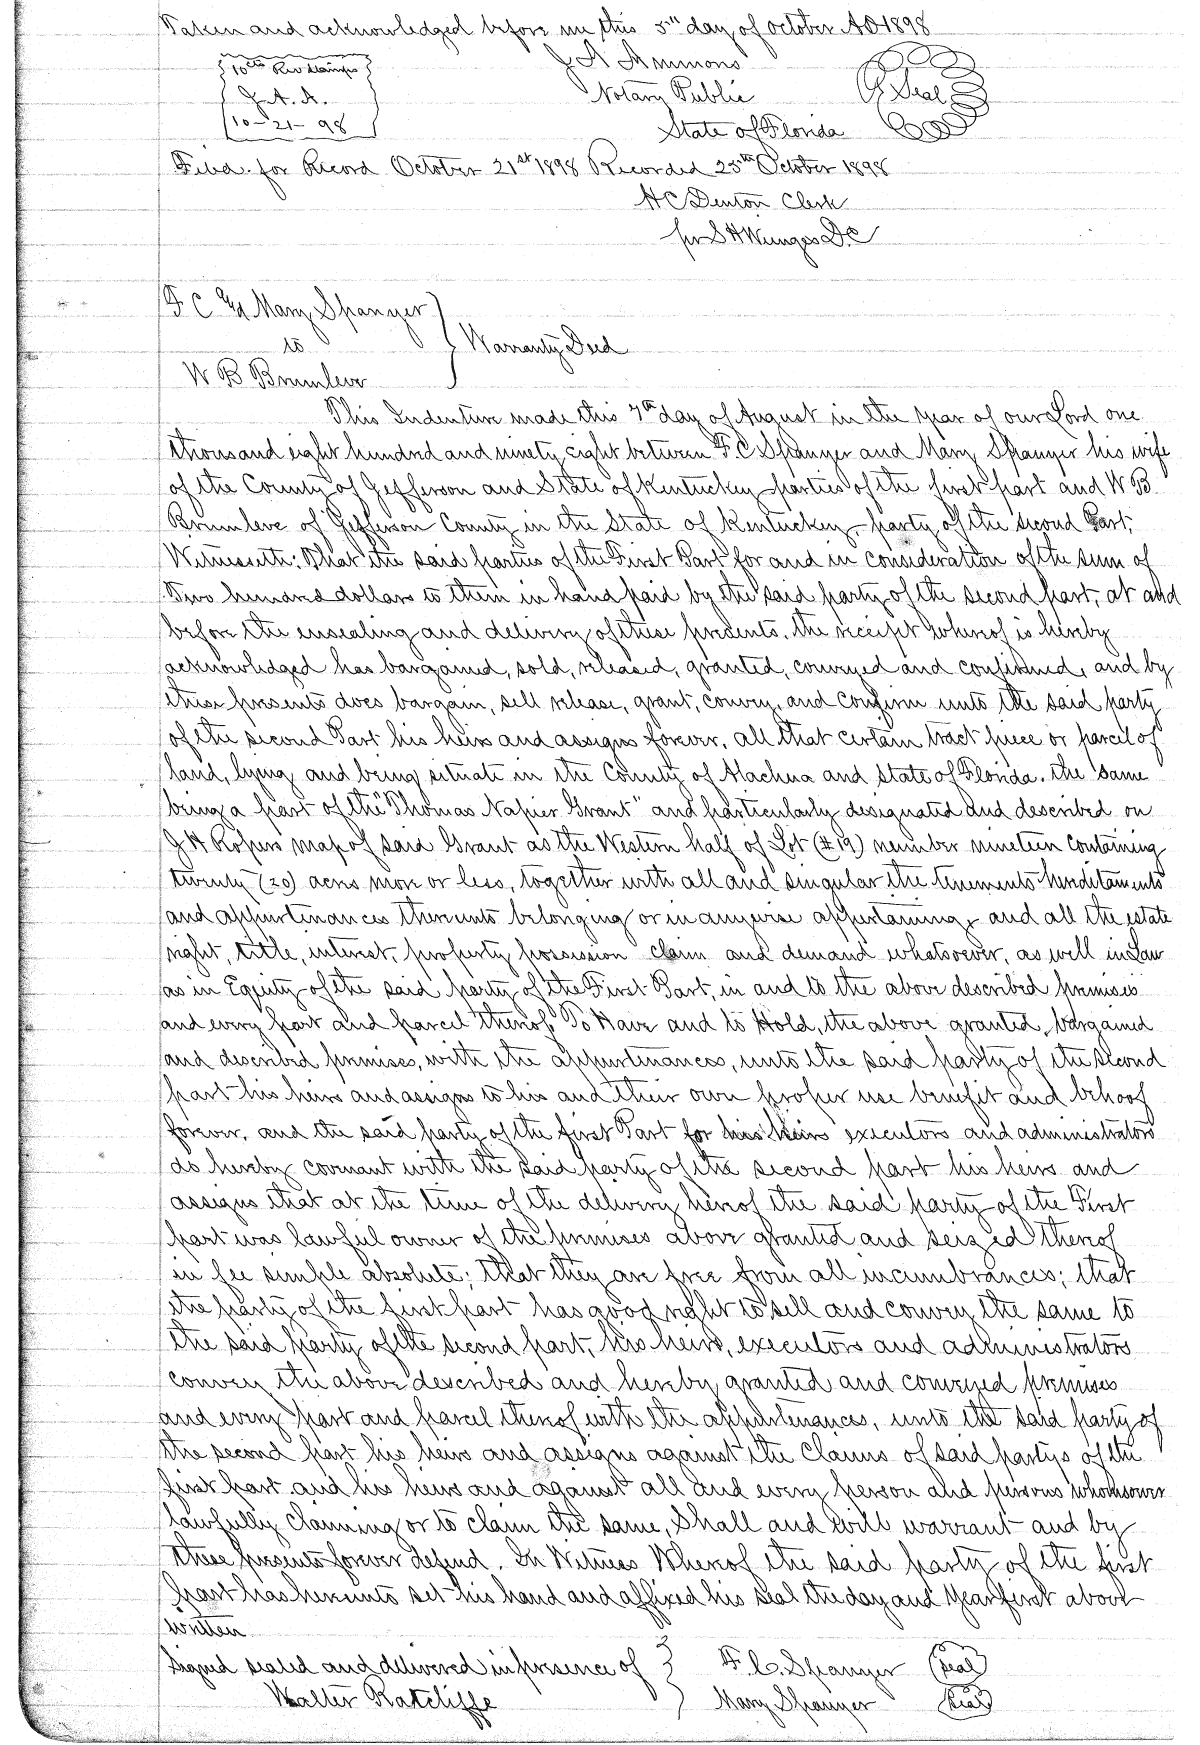 Taken and acknowledged before me this 5th day of October AD 1898
J A Ammons
10cts Rev Stamps
Notary Public
Seal
J. A. A.
10-21-98
State of Florida
Filed for Record October 21st 1898 Recorded 25th October 1898
H C Denton Clerk
per S H Wienges D.C
F C & Mary Spanyer
to
Warranty Deed
W B Brumleve
This Indenture made this 7th day of August in the year of our Lord one
thousand eight hundred and ninety eight between F. C Spanyer and Mary Spanyer his wife
of the County of Jefferson and State of Kentuckey parties of the first part and W B
Brumleve of Jefferson County in the State of Kentuckey, party of the second Part;
Witnesseth: That the said parties of the First Part for and in consideration of the sum of
Two hundred dollars to them in hand paid by the said party of the second part, at and
before the ensealing and delivery of these presents, the receipt whereof is hereby
acknowledged has bargained, sold, released, granted, conveyed and confirmed, and by
these presents does bargain, sell release, grant, convey, and confirm unto the said party
of the second Part his heirs and assigns forever, all that certain tract piece or parcel of
land, lying and being situate in the County of Alachua and State of Florida. the same
being a part of the "Thomas Napier Grant" and particularly designated and described on
J H Ropers map of said Grant as the Western half of Lot (#19) number nineteen containing
twenty (20) acres more or less, together with all and singular the tenements hereditaments
and appurtenances thereunto belonging or in anywise appertaining, and all the estate
right, title, interest, property possession claim and demand whatsoever, as well in Law
as in Equity of the said party of the First Part, in and to the above described premises
and every part and parcel thereof, To Have and to Hold, the above granted, bargained
and described premises, with the appurtenances, unto the said party of the second
part his heirs and assigns to his and their own proper use benefit and behoof
forever, and the said party of the first Part for his heirs executors and administrators
do hereby covenant with the said party of the second part his heirs and
assigns that at the time of the delivery hereof the said party of the First
part was lawful owner of the premises above granted and seized thereof
in fee simple absolute; that they are free from all incumbrances; that
the party of the first part has good right to sell and convey the same to
the said party of the second part, his heirs, executors and administrators
convey the above described and hereby granted and conveyed premises
and every part and parcel thereof with the appurtenances, unto the said party of
the second part his heirs and assigns against the Claims of said partys of the
first part and his heirs and against all and every person and persons whomsoever
lawfully claiming or to claim the same, Shall and will warrant and by
these presents forever defend. In Witness Whereof the said party of the first
part has hereunto set his hand and affixed his seal the day and year first above
written
Signed sealed and delivered in presence of F. C. Spanyer (seal)
Walter Ratcliffe Mary Spanyer (seal)